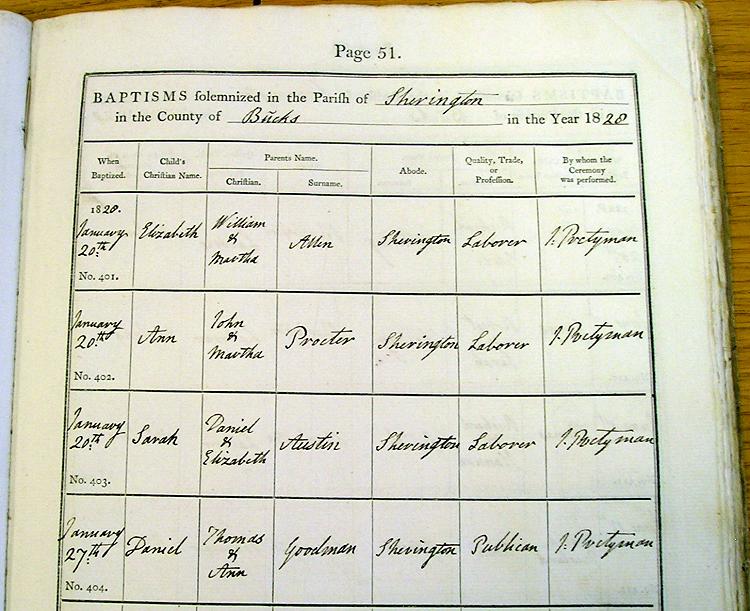 Page 51.
BAPTISMS solemnized in the Parish of Sherington
in the County of Bucks in the Year 1828
When Baptized. Child's Christian Name. Parents Name. Christian. Surname. Abode. Quality, Trade, or Profession. By whom the Ceremony was performed.
1828. January 20th. No. 401. Elizabeth William & Martha Allin Sherington Laborer J. Pretyman
January 20th. No. 402. Ann John & Martha Procter Sherington Laborer J. Pretyman
January 20th. No. 403. Sarah Daniel & Elizabeth Austin Sherington Laborer J. Pretyman
January 27th. No. 404. Daniel Thomas & Ann Goodman Sherington Publican J. Pretyman